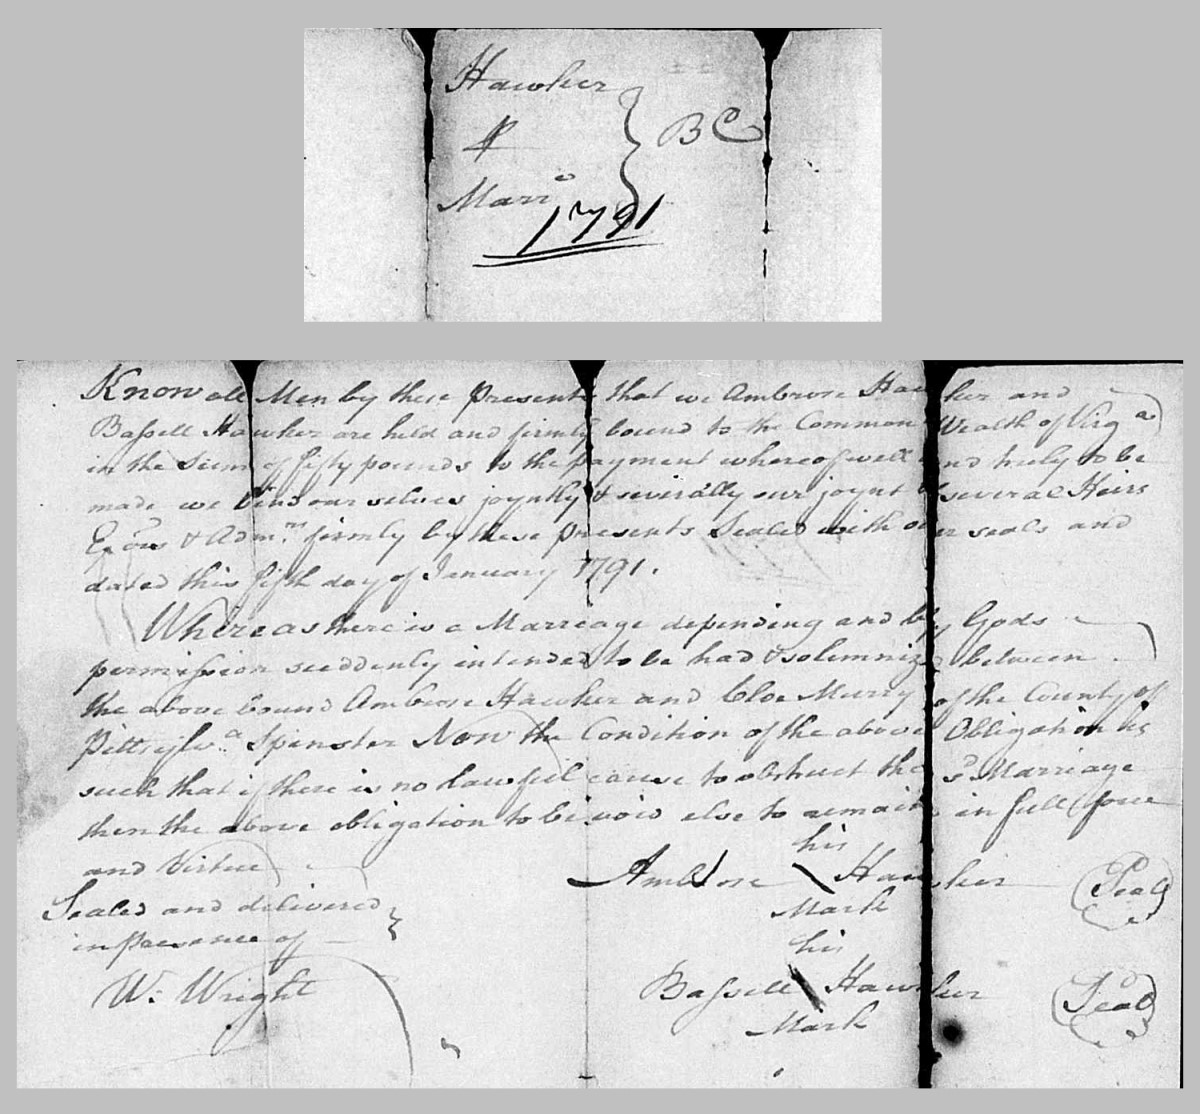 Hawker
Marr
1791
Bd
Know all Men by these Presents that we Ambrose Hawker and
Bassell Hawker are held and firmly bound to the Common Wealth of Virga
in the Sum of fifty pounds to the payment whereof well and truly to be
made we bind our selves joyntly & severally our joynt & several Heirs
Exors & Admrs firmly by these presents Sealed with our seals and
dated this fifth day of January 1791.
Whereas there is a Marriage depending and by Gods
permission suddenly intended to be had & solemnizd between
the above bound Ambrose Hawker and Cloe Murry of the County of
Pittsylva Spinster Now the Condition of the above Obligation is
such that if there is no lawful cause to obstruct the sd Marriage
then the above obligation to be void else to remain in full force
and Virtue
Sealed and delivered
in presence of
Wm Wright
his
Ambrose Hawker Seal
Mark
his
Bassell Hawker Seal
Mark